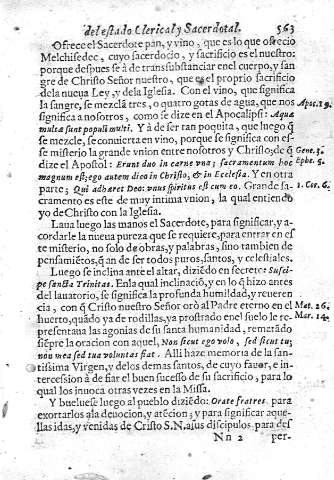 del estado Clerical, y Sacerdotal. 563
Ofrece el Sacerdote pan, y vino, que es lo que ofrecio
Melchisedec, cuyo sacerdocio, y sacrificio es el nuestro:
porque despues se à de transubstanciar en el cuerpo, y san
gre de Christo Señor nuestro, que es el proprio sacrificio
de la nueua Ley, y de la Iglesia. Con el vino, que significa
la sangre, se mezclã tres, o quatro gotas de agua, que nos
significa a nosotros, como se dize en el Apocalipsi: Aqua Apoc. 19.
multa sunt populi multi. Y à de ser tan poquita, que luego q̃
se mezcle, se conuierta en vino, porque se significa con es-
se misterio la grande vnion entre nosotros y Christo; de q̃ Gene. 3.
dize el Apostol: Erunt duo in carne vna; sacramentum hoc Ephe. 5.
magnum est; ego autem dico in Christo, & in Ecclesia. Y en otra
parte; Qui adhæret Deo: vnus spiritus est cum eo. Grande sa- 1. Cor. 6.
cramento es este de muy intima vnion, la qual entiendo
yo de Christo con la Iglesia.
Laua luego las manos el Sacerdote, para significar, y a-
cordarle la nueua pureza que se requiere, para entrar en es
te misterio, no solo de obras, y palabras, sino tambien de
pensamiẽtos, q̃ an de ser todos puros, santos, y celestiales.
Luego se inclina ante el altar, diziẽdo en secreto: Susci-
pe sancta Trinitas. En la qual inclinaciõ, y en lo q̃ hizo antes
del lauatorio, se significa la profunda humildad, y reueren
cia, con q̃ Christo nuestro Señor orò al Padre eterno en el Mat. 26.
huerto, quãdo ya de rodillas, ya prostrado en el suelo le re- Mar. 14.
presentaua las agonias de su santa humanidad, rematãdo
siẽpre la oracion con aquel, Non sicut ego volo, sed sicut tu;
non mea sed tua voluntas fiat. Alli haze memoria de la san-
tissima Virgen, y de los demas santos, de cuyo fauor, e in-
tercession à de fiar el buen sucesso de su sacrificio, para lo
qual los inuoca otras vezes en la Missa.
Y bueluese luego al pueblo diziẽdo: Orate fratres para
exortarlos a la deuocion, y atẽcion; y para significar aque-
llas idas, y venidas de Christo S.N. a sus discipulos para des
Nn 2 per-